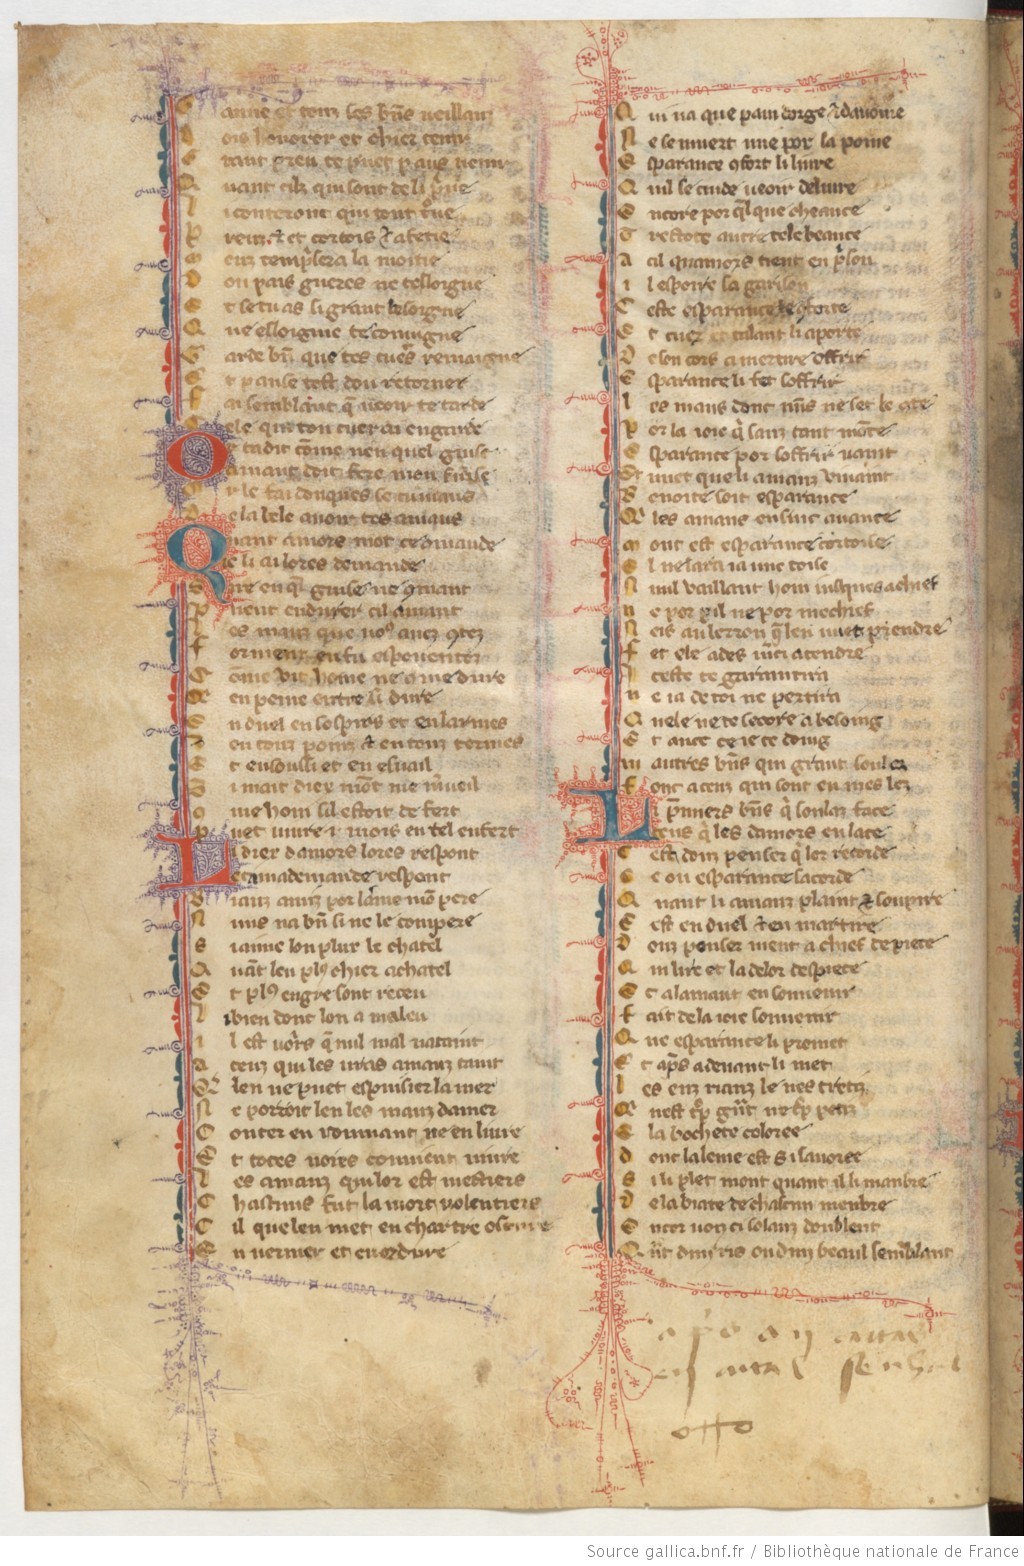 anue et touz les bñs ueillanz
ois honorer et chier tenir
tant preu te puet p aus uenir
Q uant cilz qui sont de li pñe
I i conteront qui tont tͦue
P reuz & et cortois & afetie
M euz templera la moitie
D ou pais gueres ne tesloigne
E t se tu as si grant besoigne
Q ue esloignie te couuigne
G arde bñ que tes cuers remaigne
E t panse tost dou retorner
F ai semblant q̃ ueoir te tarde
C ele qui ton cuer a en garde
O r tai dit cõme neu quel guise
Amant doit fere mon seruise
O r le fai donques se tu niaus
D e la bele auoir tes auiaus
Q uant amors mot ce cõmande
Je li ai lores demande
S ire en q̃l guise ne cõmant
P ueent endurer cil amant
L es maus que uoꝰ auez contez
F orment en sui espouentez
C ome uit home ne come dure
Q en peine en tre li dure
E n duel en sospirs et en larmes
E en touz poinz & en touz termes
E t en souci et en esuail
C i mait diex mõt me mueil
C ome hom sil estoit de fert
P uet uiure .i. mois en tel enfert
L i diex damors lores respont
Et ma demande respont
B iaus amis por lame mõ pere
N uns na bñ si ne le compere
S i aime lon plus le chatel
Q uãt len plꝰ chier achatel
E t plꝰ en gre sont receu
L i bien dont lon a maleu
I l est uoirs q̃ nul mal nataint
A ceuz qui les urais amanz taint
N e len ne puet espuisier la mer
N e porroit len les mauz damer
C onter en roumant ne en liure
E t totes uoires conuient uiure
L es amanz qui lor est mestiers
C hascuns fuit la mort uolentiers
C il que len met en chartre oscure
E n uermier et en ordure
Q ui na que pain dorge & dauoine
N e se muert mie por la poine
E sparance cõfort li liure
Q uil se cuide ueoir deliure
E ncore por q̃l que cheance
T restote autre tele beance
A cil quamors tient en pͥson
I l espoire la garison
C este esparance le cõforte
E t cuer et talant li aporte
D e son cors a mertire offrir
E sparance li fet soffrir
L es maus dont nũs ne set le cõte
P or la ioie q̃ sanz tant mõte
E sparance por soffrir uaint
Et met que li amanz uiuaint
B enoite soit esparance
Q les amans ensint auance
M out est esparance cortoise
E l ne laira ia une toise
N ul uaillant hom iusques a chief
N e por pil ne por mechief
N eis au lerron q̃ len uuet prendre
F et ele ades merci atendre
I ceste te garantira
N e ia de toi ne partira
Q uele ne te secore a besoing
E t auec ce ie te doing
III autres bñs qui grant soulez
F ont a ceuz qui sont en mes lez
L i p̃miers bñs q̃ soulaz face
Ceus q̃ les damors en lace
C est douz penser q̃ lor recorde
C e ou esparance sacorde
Q uant li amanz plaint & soupire
E est en duel & en martire
D ouz penser uient a chief de piece
Q ui lire et la dolor despiece
E t a lamant en souuenir
F ait de la ioie souuenir
Q ue esparance li promet
E t aps a deuant li met
L es euz rianz le nes tretiz
Q nest trop grant ne trop petiz
E la bochete coloree
D ont la leine est si sauoree
S i li plet mont quant il li manbre
D e la biate de chascun menbre
E ncor uet ci solauz doublent
Q ũt dun ris ou dun beaul semblant
Source gallica.bnf.fr / Bibliothèque nationale de France